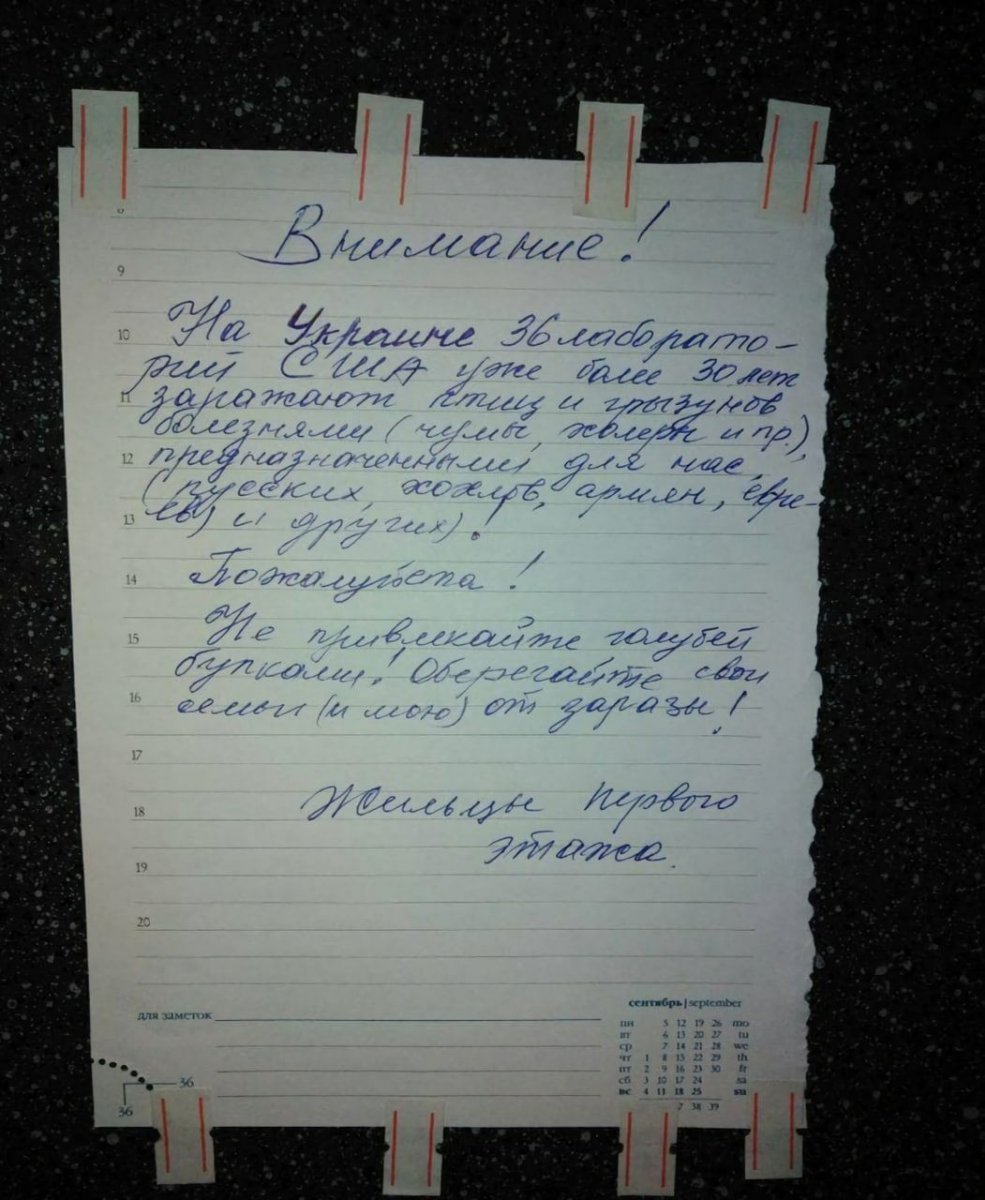 8
Внимание!
9
10 На Украине 36 лаборато-
рий США уже более 30 лет
11 заражают птиц и грызунов
болезнями (чумы, холеры и пр.),
12 предназначенными для нас,
(русских, хохлов, армян, евре-
13 ев) и других)!
14 Пожалуйста!
15 Не привлекайте голубей
булками! Оберегайте свои
16 семьи (и мою) от заразы!
17
18 Жильцы первого
этажа.
19
20
для заметок
сентябрь | september
пн 5 12 19 26 mo
вт 6 13 20 27 tu
ср 7 14 21 28 we
чт 1 8 15 22 29 th
пт 2 9 16 23 30 fr
сб 3 10 17 24 sa
вс 4 11 18 25 su
7 38 39
36
36